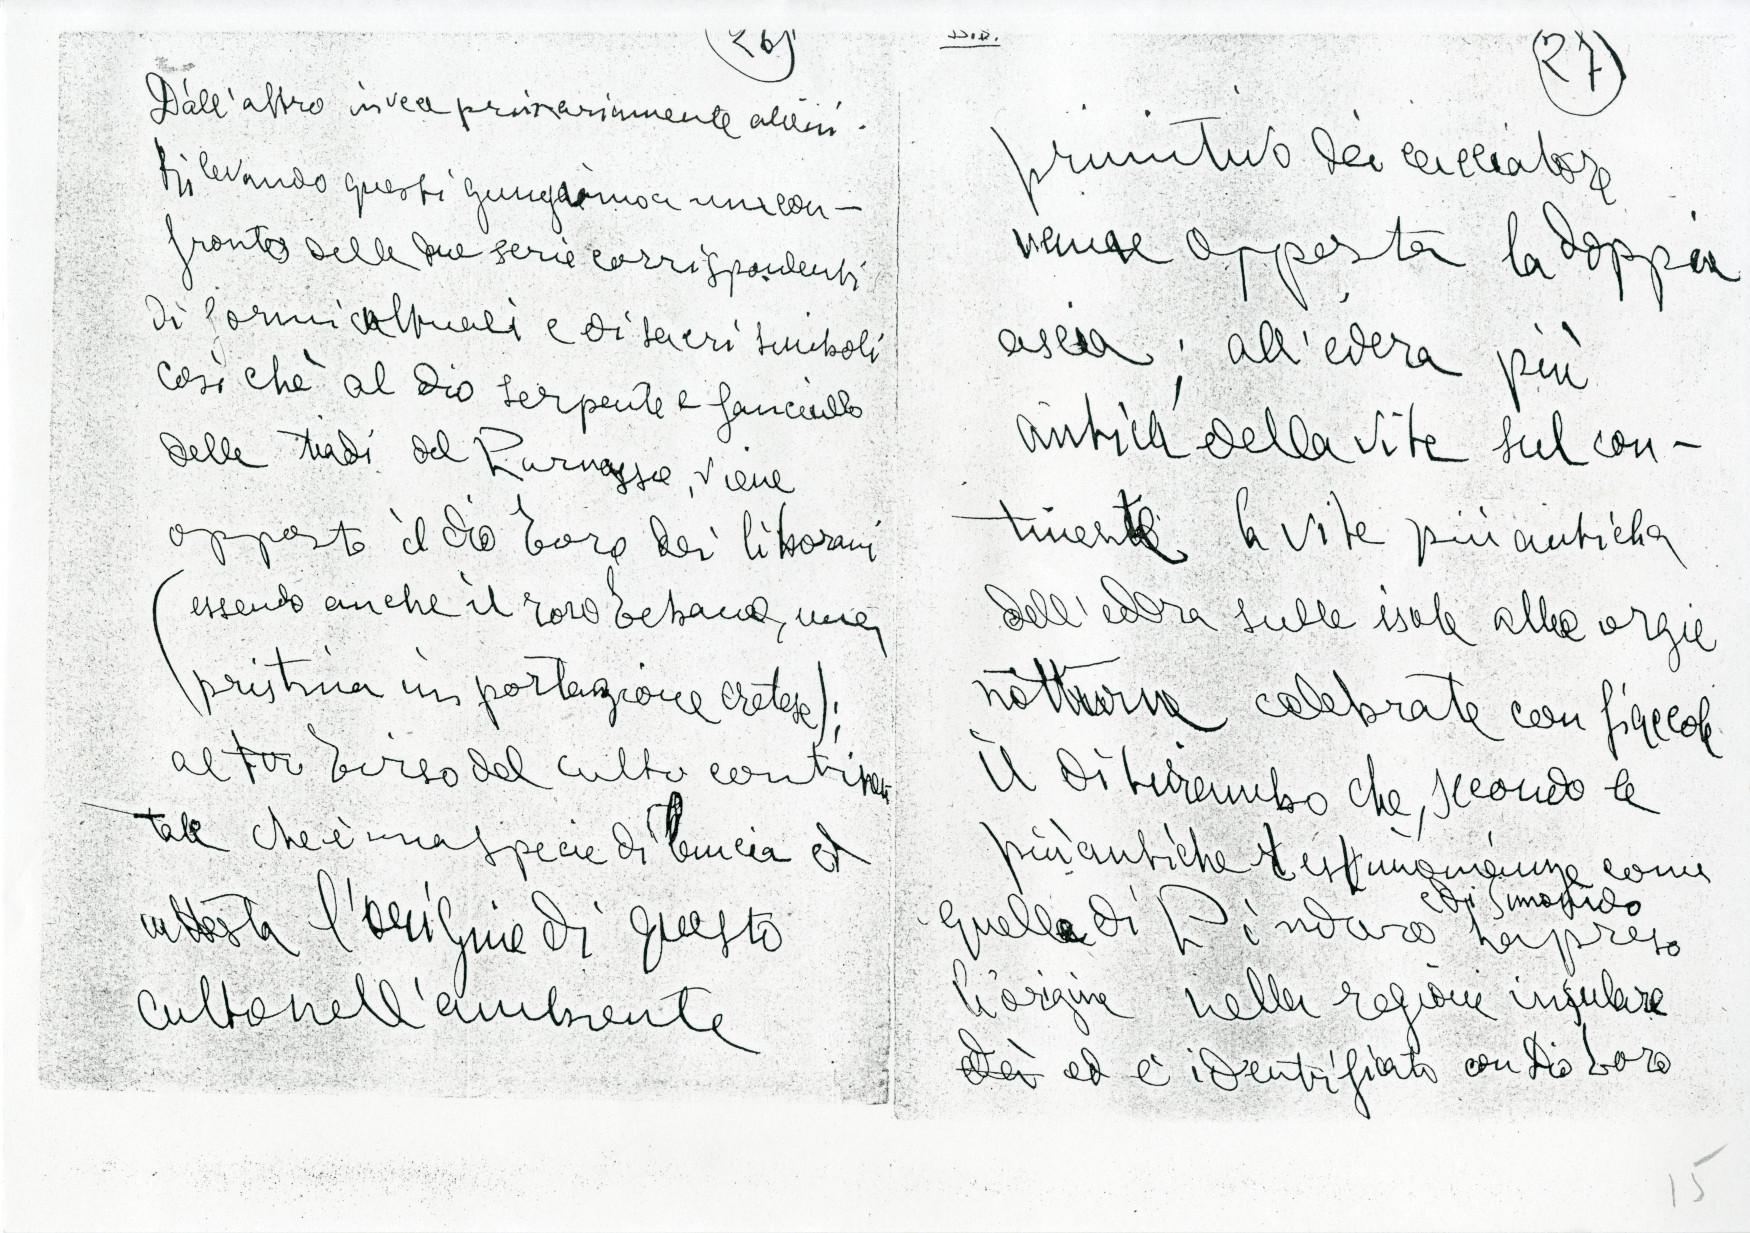 26)
Dall'altro invece primariamente alieni.
Rilevando questi giungiamo a un con-
fronto delle due serie corrispondenti
di formi cultuali e di sacri simboli
così chè al dio serpente e fanciullo
delle tiadi del Parnasso, viene
opposto il dio toro dei litorani
(essendo anche il toro tebano, una
pristina importazione cretese);
al tirso del culto continen
tale che è una specie di lancia ed
attesta l'origine di questo
culto nell'ambiente
27
primitivo dei cacciatori
viene opposta la doppia
ascia; all'edera più
antica della vite sul con-
tinente la vite più antica
dell'edera sulle isole alle orgie
notturne celebrate con fiaccole
il ditirambo che, secondo le
più antiche testimonianze come
quelle di Pindaro e di Simonide ha preso
l'origine nella regione insulare
dei ed è identificato con dio toro
15